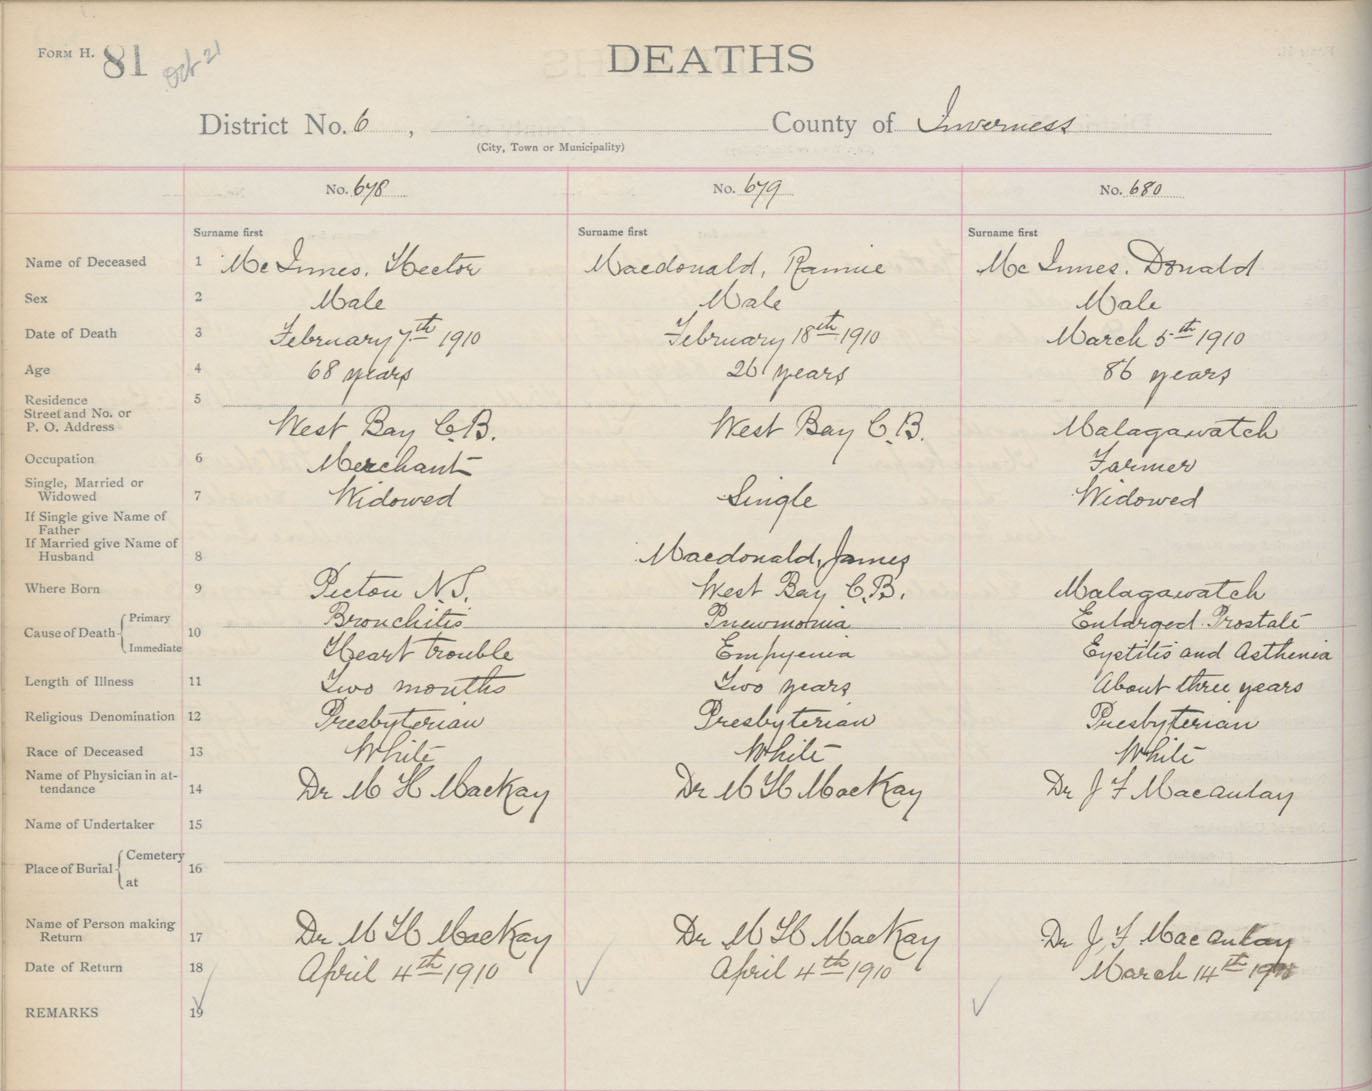 FORM H. 81 Oct 21
DEATHS
District No. 6 , County of Inverness
(City, Town or Municipality)
No. 678 No. 679 No. 680
Surname first Surname first Surname first
Name of Deceased 1 McInnes, Hector Macdonald, Rannie McInnes. Donald
Sex 2 Male Male Male
Date of Death 3 February 7th 1910 February 18th 1910 March 5th 1910
Age 4 68 years 26 years 86 years
Residence 5
Street and No. or
P. O. Address West Bay C.B. West Bay C.B. Malagawatch
Occupation 6 Merchant Farmer
Single, Married or
Widowed 7 Widowed Single Widowed
If Single give Name of
Father
If Married give Name of
Husband 8 Macdonald, James
Where Born 9 Pictou N.S. West Bay C.B. Malagawatch
Cause of Death 10 Primary Bronchitis Pneumonia Enlarged Prostate
Immediate Heart trouble Empyenia Eystitis and Asthenia
Length of Illness 11 Two months Two years About three years
Religious Denomination 12 Presbyterian Presbyterian Presbyterian
Race of Deceased 13 White White White
Name of Physician in at-
tendance 14 Dr M H MacKay Dr M H MacKay Dr J F Macaulay
Name of Undertaker 15
Place of Burial 16 Cemetery
at
Name of Person making
Return 17 Dr M H MacKay Dr M H MacKay Dr J F Macaulay
Date of Return 18 April 4th 1910 April 4th 1910 March 14th 1910
REMARKS 19